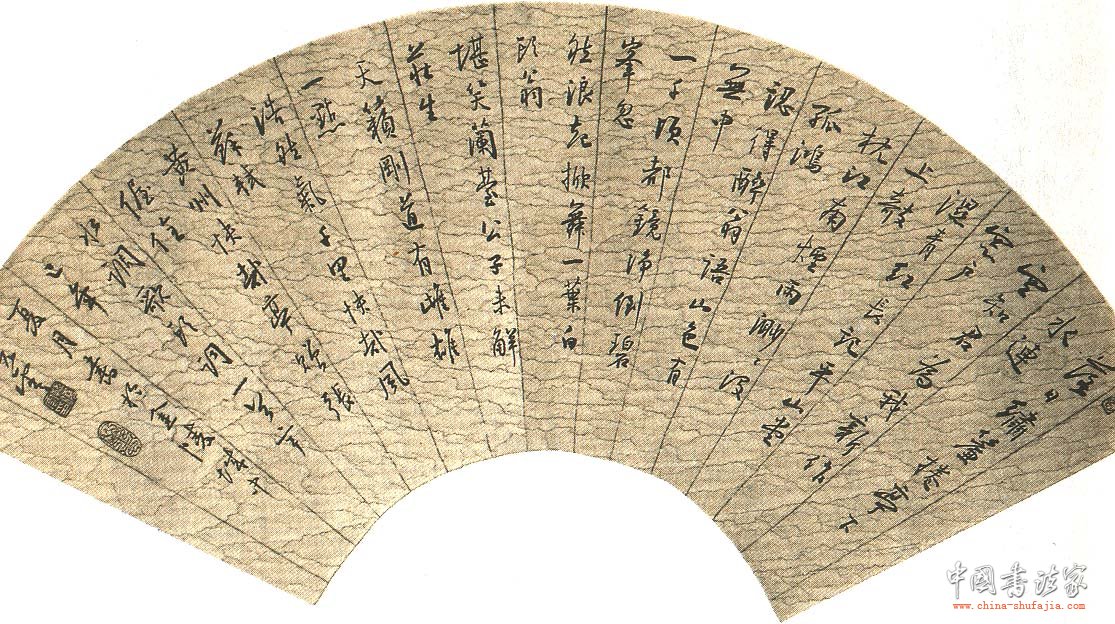 落日繡簾捲亭下
水連
空知君為我新作
窗戶
濕青紅長記平山堂
上敧
枕江南煙雨渺渺沒
孤鴻
認得醉翁語山色有
無中
一千頃都鏡淨倒碧
峯忽
然浪起掀舞一葉白
頭翁
堪笑蘭臺公子未解
莊生
天籟剛道有雌雄
一點
浩然氣千里快哉風
蘇軾
黃州快哉亭贈張
偓佺
水調歌頭詞一首
夏月書於金陵
中國书法家
www.china-shufajia.com